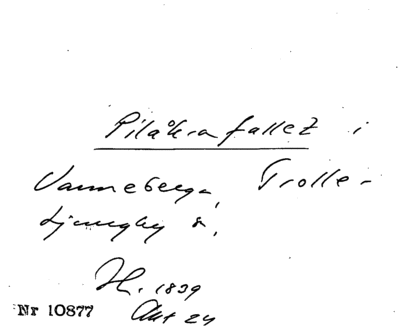 Pilåkrafallet i
Vanneberga, Trolle-
Ljungby s,
H. 1839
Akt 24
Nr 10877